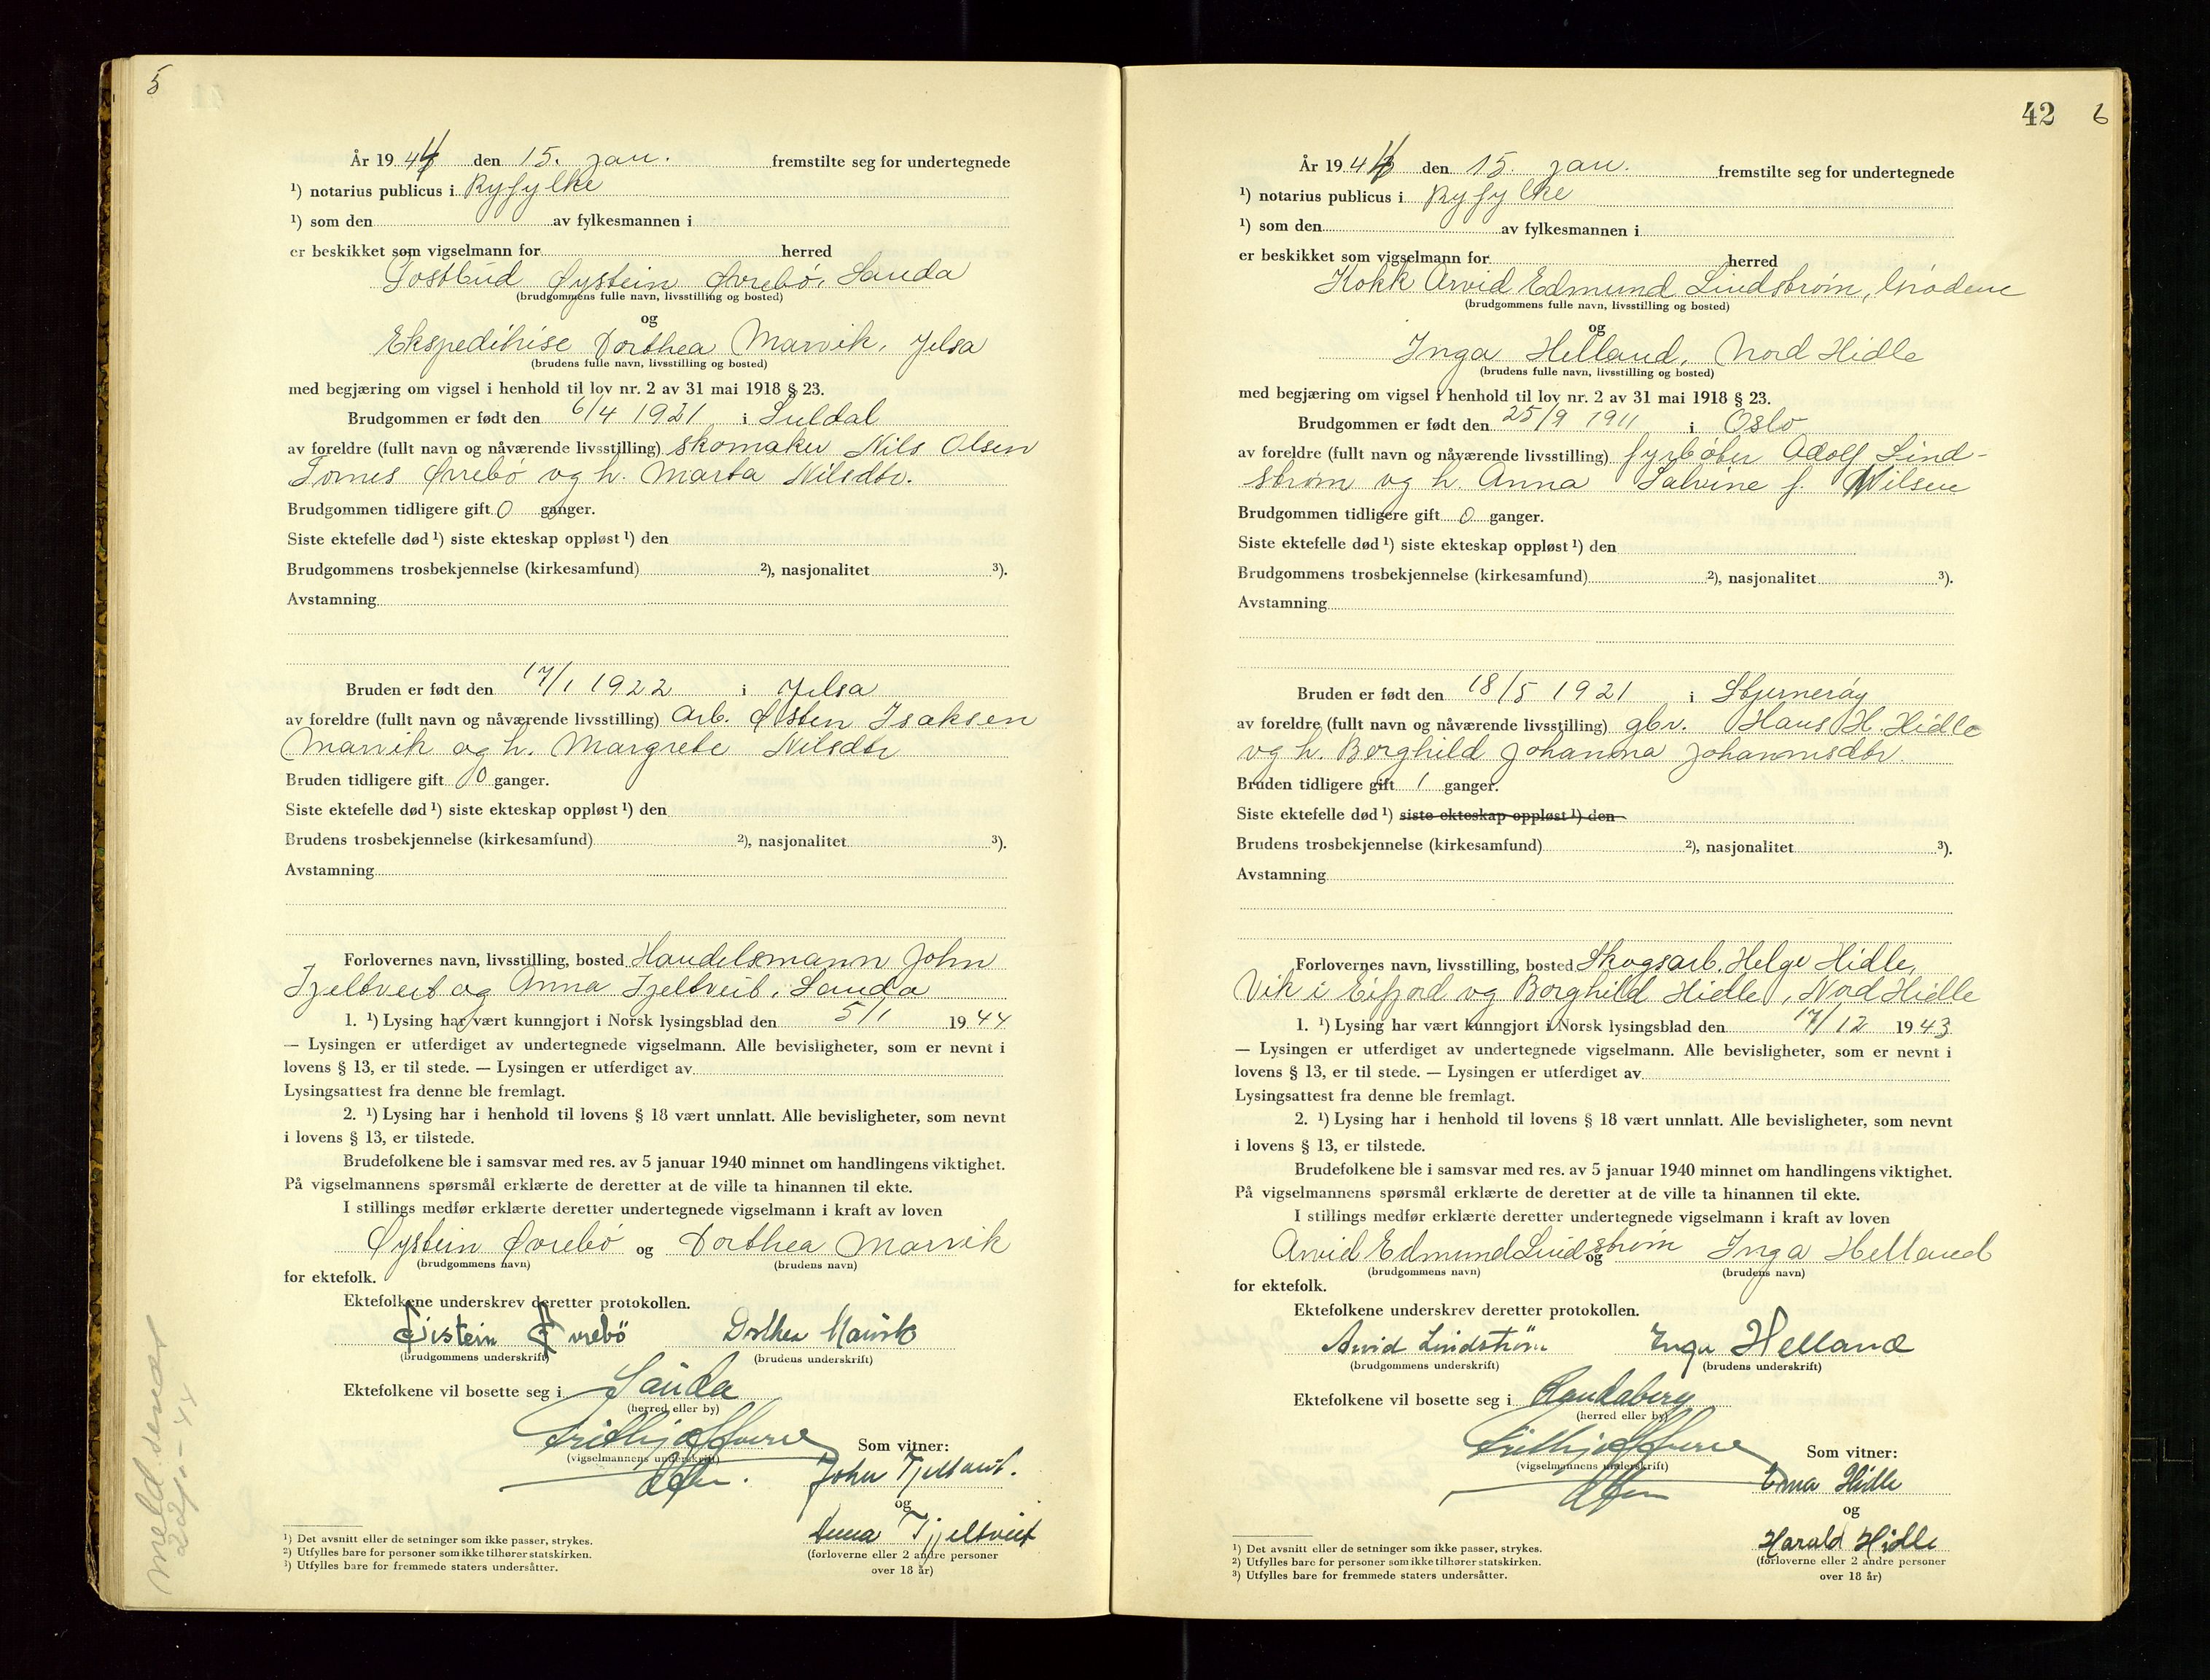 5
År 1944 den 15. jan. fremstilte seg for undertegnede
¹) notarius publicus i Ryfylke
¹) som den av fylkesmannen i
er beskikket som vigselmann for herred
Postbud Øystein Øvrebø, Sauda
(brudgommens fulle navn, livsstilling og bosted)
og
Ekspeditrise Dorthea Marvik, Jelsa
(brudens fulle navn, livsstilling og bosted)
med begjæring om vigsel i henhold til lov nr. 2 av 31 mai 1918 § 23.
Brudgommen er født den 6/4 1921 i Suldal
av foreldre (fullt navn og nåværende livsstilling) skomaker Nils Olsen
Øvrebø og h. Marta Nilsdtr.
Brudgommen tidligere gift 0 ganger.
Siste ektefelle død ¹) siste ekteskap oppløst ¹) den
Brudgommens trosbekjennelse (kirkesamfund) ²), nasjonalitet ³).
Avstamning
Bruden er født den 17/1 1922 i Jelsa
av foreldre (fullt navn og nåværende livsstilling) arb. Østen Isaksen
Marvik og h. Margrete Nilsdtr
Bruden tidligere gift 0 ganger.
Siste ektefelle død ¹) siste ekteskap oppløst ¹) den
Brudens trosbekjennelse (kirkesamfund) ²), nasjonalitet ³).
Avstamning
Forlovernes navn, livsstilling, bosted Handelsmann John
Tjeltveit og Anna Tjeltveit, Sauda
1. ¹) Lysing har vært kunngjort i Norsk lysingsblad den 5/1 1944
— Lysingen er utferdiget av undertegnede vigselmann. Alle bevisligheter, som er nevnt i
lovens § 13, er til stede. — Lysingen er utferdiget av
Lysingsattest fra denne ble fremlagt.
2. ¹) Lysing har i henhold til lovens § 18 vært unnlatt. Alle bevisligheter, som nevnt
i lovens § 13, er tilstede.
Brudefolkene ble i samsvar med res. av 5 januar 1940 minnet om handlingens viktighet.
På vigselmannens spørsmål erklærte de deretter at de ville ta hinannen til ekte.
I stillings medfør erklærte deretter undertegnede vigselmann i kraft av loven
Øystein Øvrebø og Dorthea Marvik
(brudgommens navn) (brudens navn)
for ektefolk.
Ektefolkene underskrev deretter protokollen.
Øistein Øvrebö Dorthea Marvik
(brudgommens underskrift) (brudens underskrift)
Ektefolkene vil bosette seg i Sauda
(herred eller by)
Som vitner:
(vigselmannens underskrift)
John Tjeltveit.
og
Anna Tjeltveit
(forloverne eller 2 andre personer
over 18 år)
meld. sendt
22/1-44
¹) Det avsnitt eller de setninger som ikke passer, strykes.
²) Utfylles bare for personer som ikke tilhører statskirken.
³) Utfylles bare for fremmede staters undersåtter.
42 6
År 1944 den 15. jan. fremstilte seg for undertegnede
¹) notarius publicus i Ryfylke
¹) som den av fylkesmannen i
er beskikket som vigselmann for herred
Kokk Arvid Edmund Lindstrøm, Grødem
(brudgommens fulle navn, livsstilling og bosted)
og
Inga Helland, Nord Hidle
(brudens fulle navn, livsstilling og bosted)
med begjæring om vigsel i henhold til lov nr. 2 av 31 mai 1918 § 23.
Brudgommen er født den 25/9 1911 i Oslo
av foreldre (fullt navn og nåværende livsstilling) fyrbøter Adolf Lind-
strøm og h. Anna Salvine f. Nilsen
Brudgommen tidligere gift 0 ganger.
Siste ektefelle død ¹) siste ekteskap oppløst ¹) den
Brudgommens trosbekjennelse (kirkesamfund) ²), nasjonalitet ³).
Avstamning
Bruden er født den 18/5 1921 i Stjernerøy
av foreldre (fullt navn og nåværende livsstilling) gbr. Hans H. Hidle
og h. Borghild Johanna Johannesdtr.
Bruden tidligere gift 1 ganger.
Siste ektefelle død ¹) siste ekteskap oppløst ¹) den
Brudens trosbekjennelse (kirkesamfund) ²), nasjonalitet ³).
Avstamning
Forlovernes navn, livsstilling, bosted Skogsarb. Helge Hidle,
Vik i Eifjord og Borghild Hidle, Nord Hidle
1. ¹) Lysing har vært kunngjort i Norsk lysingsblad den 17/12 1943
— Lysingen er utferdiget av undertegnede vigselmann. Alle bevisligheter, som er nevnt i
lovens § 13, er til stede. — Lysingen er utferdiget av
Lysingsattest fra denne ble fremlagt.
2. ¹) Lysing har i henhold til lovens § 18 vært unnlatt. Alle bevisligheter, som nevnt
i lovens § 13, er tilstede.
Brudefolkene ble i samsvar med res. av 5 januar 1940 minnet om handlingens viktighet.
På vigselmannens spørsmål erklærte de deretter at de ville ta hinannen til ekte.
I stillings medfør erklærte deretter undertegnede vigselmann i kraft av loven
Arvid Edmund Lindstrøm og Inga Helland
(brudgommens navn) (brudens navn)
for ektefolk.
Ektefolkene underskrev deretter protokollen.
Arvid Lindstrøm Inga Helland
(brudgommens underskrift) (brudens underskrift)
Ektefolkene vil bosette seg i Randaberg
(herred eller by)
Som vitner:
(vigselmannens underskrift)
Erna Hidle
og
Harald Hidle
(forloverne eller 2 andre personer
over 18 år)
¹) Det avsnitt eller de setninger som ikke passer, strykes.
²) Utfylles bare for personer som ikke tilhører statskirken.
³) Utfylles bare for fremmede staters undersåtter.